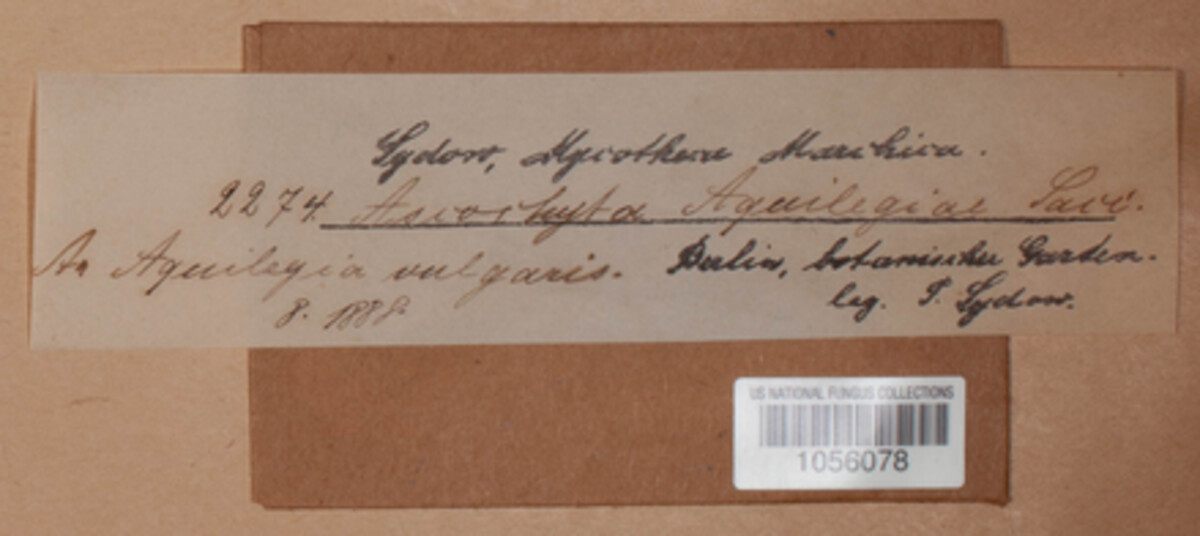 Sydow, Mycotheca Marchica.
2274. Ascochyta Aquilegiae Sacc.
An Aquilegia vulgaris. Berlin, botanischer Garten.
8. 1888. leg. P. Sydow.
US NATIONAL FUNGUS COLLECTIONS
1056078